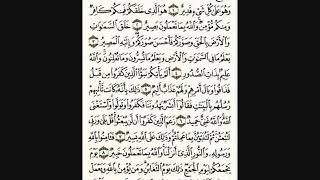 وَهُوَ عَلَىٰ كُلِّ شَيْءٍ قَدِيرٌ ۝ هُوَ الَّذِي خَلَقَكُمْ فَمِنكُمْ كَافِرٌ
وَمِنكُم مُّؤْمِنٌ ۚ وَاللَّهُ بِمَا تَعْمَلُونَ بَصِيرٌ ۝ خَلَقَ السَّمَاوَاتِ
وَالْأَرْضَ بِالْحَقِّ وَصَوَّرَكُمْ فَأَحْسَنَ صُوَرَكُمْ ۖ وَإِلَيْهِ الْمَصِيرُ ۝
يَعْلَمُ مَا فِي السَّمَاوَاتِ وَالْأَرْضِ وَيَعْلَمُ مَا تُسِرُّونَ وَمَا تُعْلِنُونَ ۚ وَاللَّهُ
عَلِيمٌ بِذَاتِ الصُّدُورِ ۝ أَلَمْ يَأْتِكُمْ نَبَأُ الَّذِينَ كَفَرُوا مِن قَبْلُ
فَذَاقُوا وَبَالَ أَمْرِهِمْ وَلَهُمْ عَذَابٌ أَلِيمٌ ۝ ذَٰلِكَ بِأَنَّهُ كَانَت تَّأْتِيهِمْ
رُسُلُهُم بِالْبَيِّنَاتِ فَقَالُوا أَبَشَرٌ يَهْدُونَنَا فَكَفَرُوا وَتَوَلَّوا ۚ وَّاسْتَغْنَى
اللَّهُ ۚ وَاللَّهُ غَنِيٌّ حَمِيدٌ ۝ زَعَمَ الَّذِينَ كَفَرُوا أَن لَّن يُبْعَثُوا ۚ قُلْ بَلَىٰ وَرَبِّي
لَتُبْعَثُنَّ ثُمَّ لَتُنَبَّؤُنَّ بِمَا عَمِلْتُمْ ۚ وَذَٰلِكَ عَلَى اللَّهِ يَسِيرٌ ۝ فَآمِنُوا بِاللَّهِ
وَرَسُولِهِ وَالنُّورِ الَّذِي أَنزَلْنَا ۚ وَاللَّهُ بِمَا تَعْمَلُونَ خَبِيرٌ ۝ يَوْمَ
يَجْمَعُكُمْ لِيَوْمِ الْجَمْعِ ۖ ذَٰلِكَ يَوْمُ التَّغَابُنِ ۗ وَمَن يُؤْمِن بِاللَّهِ وَيَعْمَلْ